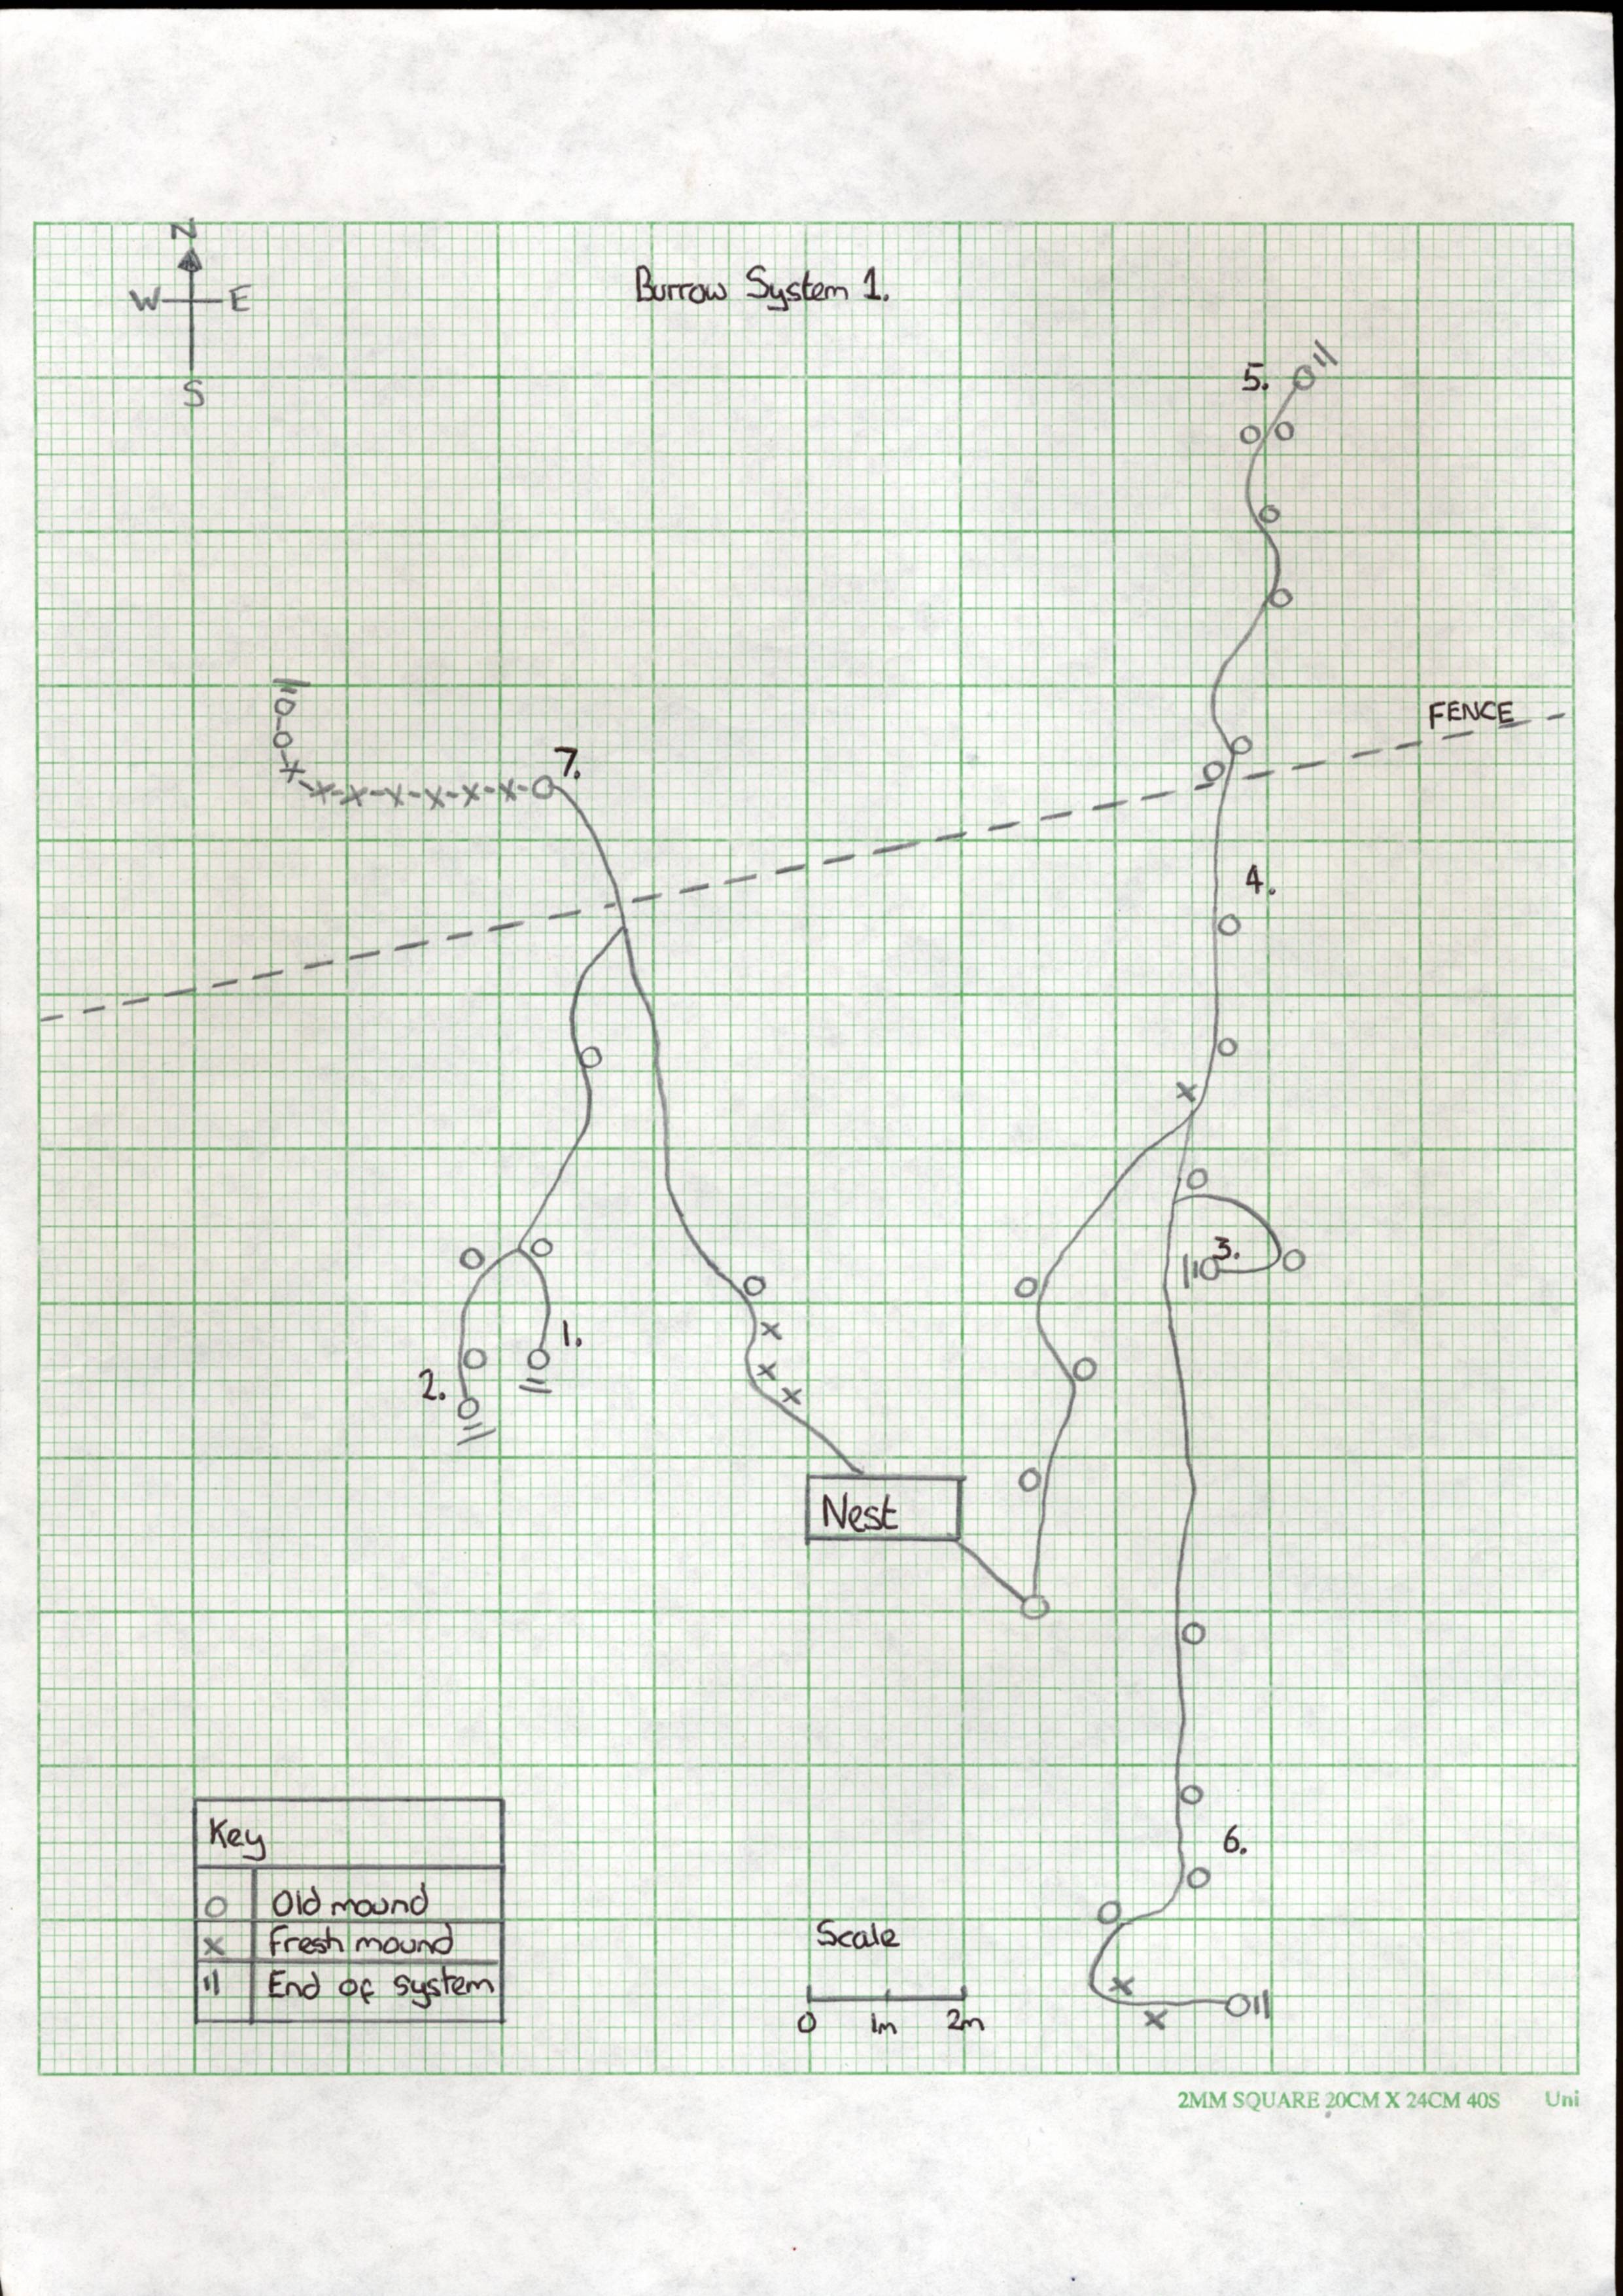 N
W E
S
Burrow System 1.
5.
FENCE
7.
4.
3.
1.
2.
Nest
6.
Key
O Old mound
x Fresh mound
|| End of system
Scale
0 1m 2m
2MM SQUARE 20CM X 24CM 40S Uni